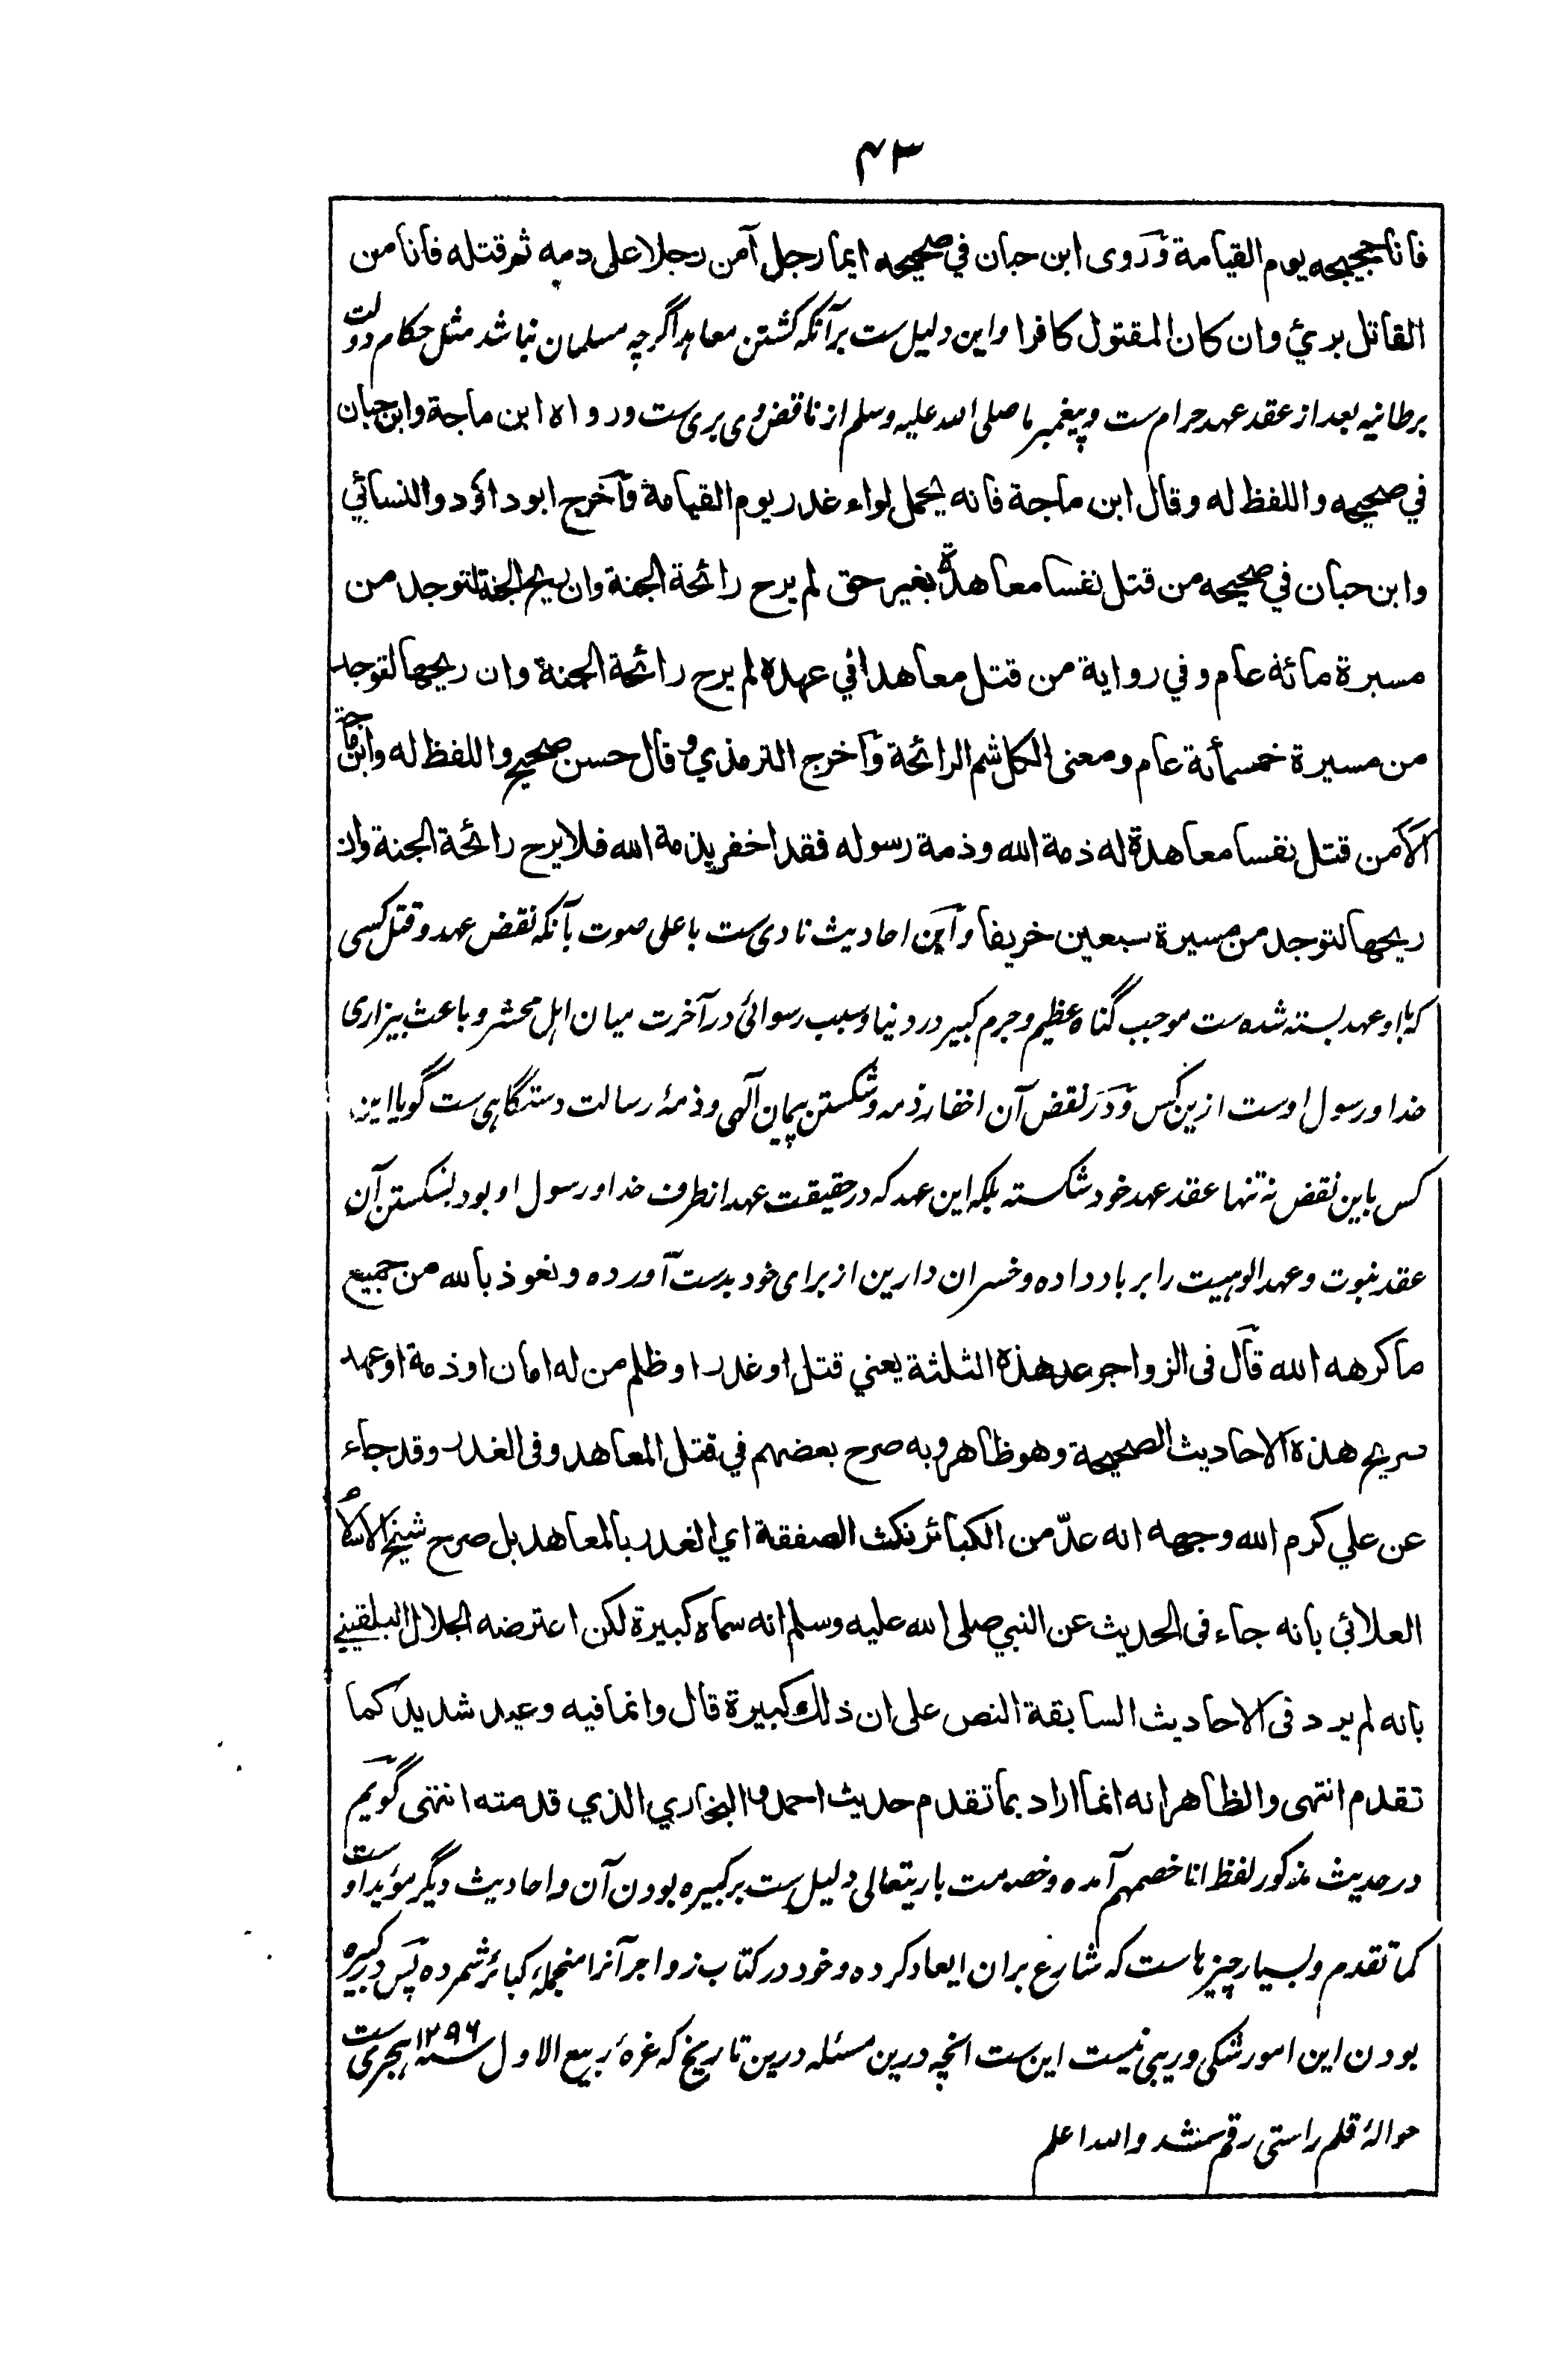 ۴۳
فانا حجيجه يوم القيامة وروى ابن حبان في صحيحه ايما رجل آمن رجلا على دمه ثم قتله فانا من
القاتل برئ وان كان المقتول كافرا واین دلیل ست برآنکه کشتن معاہد اگرچه مسلمان نباشد مثل حکام دولت
برطانیه بعد از عقد عهد حرام ست و پیغمبر ما صلی الله علیه وسلم از ناقض وی بری ست ورواه ابن ماجة وابن حبان
في صحيحه واللفظ له وقال ابن ماجة فانه يحمل لواء غدر يوم القيامة وآخرج ابو داؤد والنسائي
وابن حبان في صحيحه من قتل نفسا معاهدة بغير حق لم يرح رائحة الجنة وان ريح الجنة لتوجد من
مسيرة مائة عام وفي رواية من قتل معاهدا في عهده لم يرح رائحة الجنة وان ريحها لتوجد
من مسيرة خمسمأئة عام ومعنى الكل شم الرائحة وآخرج الترمذي وقال حسن صحيح واللفظ له وابن ماجة
الا من قتل نفسا معاهدة له ذمة الله وذمة رسوله فقد اخفر بذمة الله فلا يرح رائحة الجنة وان
ريحها لتوجد من مسيرة سبعين خريفا واین احادیث نادی ست باعلی صوت بآنکه نقض عهد و قتل کسی
که با او عهد بسته شده ست موجب گناه عظیم و جرم کبیر در دنیا و سبب رسوائی در آخرت میان اہل محشر و باعث بیزاری
خدا و رسول اوست ازین کس و در نقض آن اخفار ذمه و شکستن پیمان آلهی و ذمهٔ رسالت دستگاہی ست گویا این
کس باین نقض نه تنها عقد عهد خود شکسته بلکه این عهد که در حقیقت عهد از طرف خدا و رسول او بود بشکستن آن
عقد نبوت و عهد الوہیت را بر باد داده و خسران دارین از برای خود بدست آورده ونعوذ بالله من جميع
ما كرهه الله قال فى الزواجر عد هذه الثلثة يعني قتل او غدر او ظلم من له امان او ذمة او عهد
صريح هذه الاحاديث الصحيحة وهو ظاهر وبه صرح بعضهم في قتل المعاهد وفى الغدر وقد جاء
عن علي كرم الله وجهه انه عدّ من الكبائر نكث الصفقة اي الغدر بالمعاهد بل صرح شيخ الاسلام
العلائي بانه جاء فى الحديث عن النبي صلى الله عليه وسلم انه سماه كبيرة لكن اعترضه الجلال البلقيني
بانه لم يرد فى الاحاديث السابقة النص على ان ذلك كبيرة قال وانما فيه وعيد شديد كما
تقدم انتهى والظاهر انه انما اراد بما تقدم حديث احمد والبخاري الذي قدمته انتهى گویم
در حدیث مذکور لفظ انا خصمهم آمده و خصومت باریتعالی دلیل ست بر کبیره بودن آن و احادیث دیگر مؤید اوست
کما تقدم و بسیار چیزہاست که شارع بران ایعاد کرده و خود در کتاب زواجر آنرا منجملهٔ کبائر شمرده پس در کبیره
بودن این امور شکی و ریبی نیست این ست انچه درین مسئله درین تاریخ که غرهٔ ربیع الاول سنه ۱۲۹۶ ہجری ست
حوالهٔ قلم راستی رقم شد والله اعلم